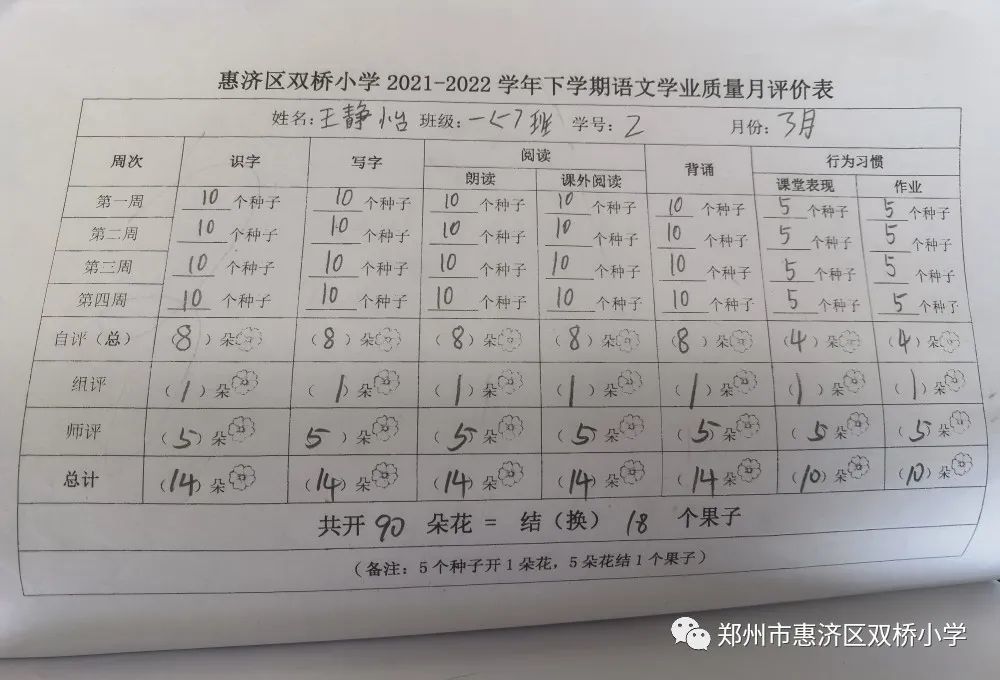 惠济区双桥小学 2021-2022 学年下学期语文学业质量月评价表
姓名：王静怡 班级：一（7）班 学号：2 月份：3月
周次 识字 写字 阅读 背诵 行为习惯
朗读 课外阅读 课堂表现 作业
第一周 10个种子 10个种子 10个种子 10个种子 10个种子 5个种子 5个种子
第二周 10个种子 10个种子 10个种子 10个种子 10个种子 5个种子 5个种子
第三周 10个种子 10个种子 10个种子 10个种子 10个种子 5个种子 5个种子
第四周 10个种子 10个种子 10个种子 10个种子 10个种子 5个种子 5个种子
自评（总） （8）朵 （8）朵 （8）朵 （8）朵 （8）朵 （4）朵 （4）朵
组评 （1）朵 （1）朵 （1）朵 （1）朵 （1）朵 （1）朵 （1）朵
师评 （5）朵 （5）朵 （5）朵 （5）朵 （5）朵 （5）朵 （5）朵
总计 （14）朵 （14）朵 （14）朵 （14）朵 （14）朵 （10）朵 （10）朵
共开 90 朵花 = 结（换） 18 个果子
（备注：5个种子开1朵花，5朵花结1个果子）
郑州市惠济区双桥小学